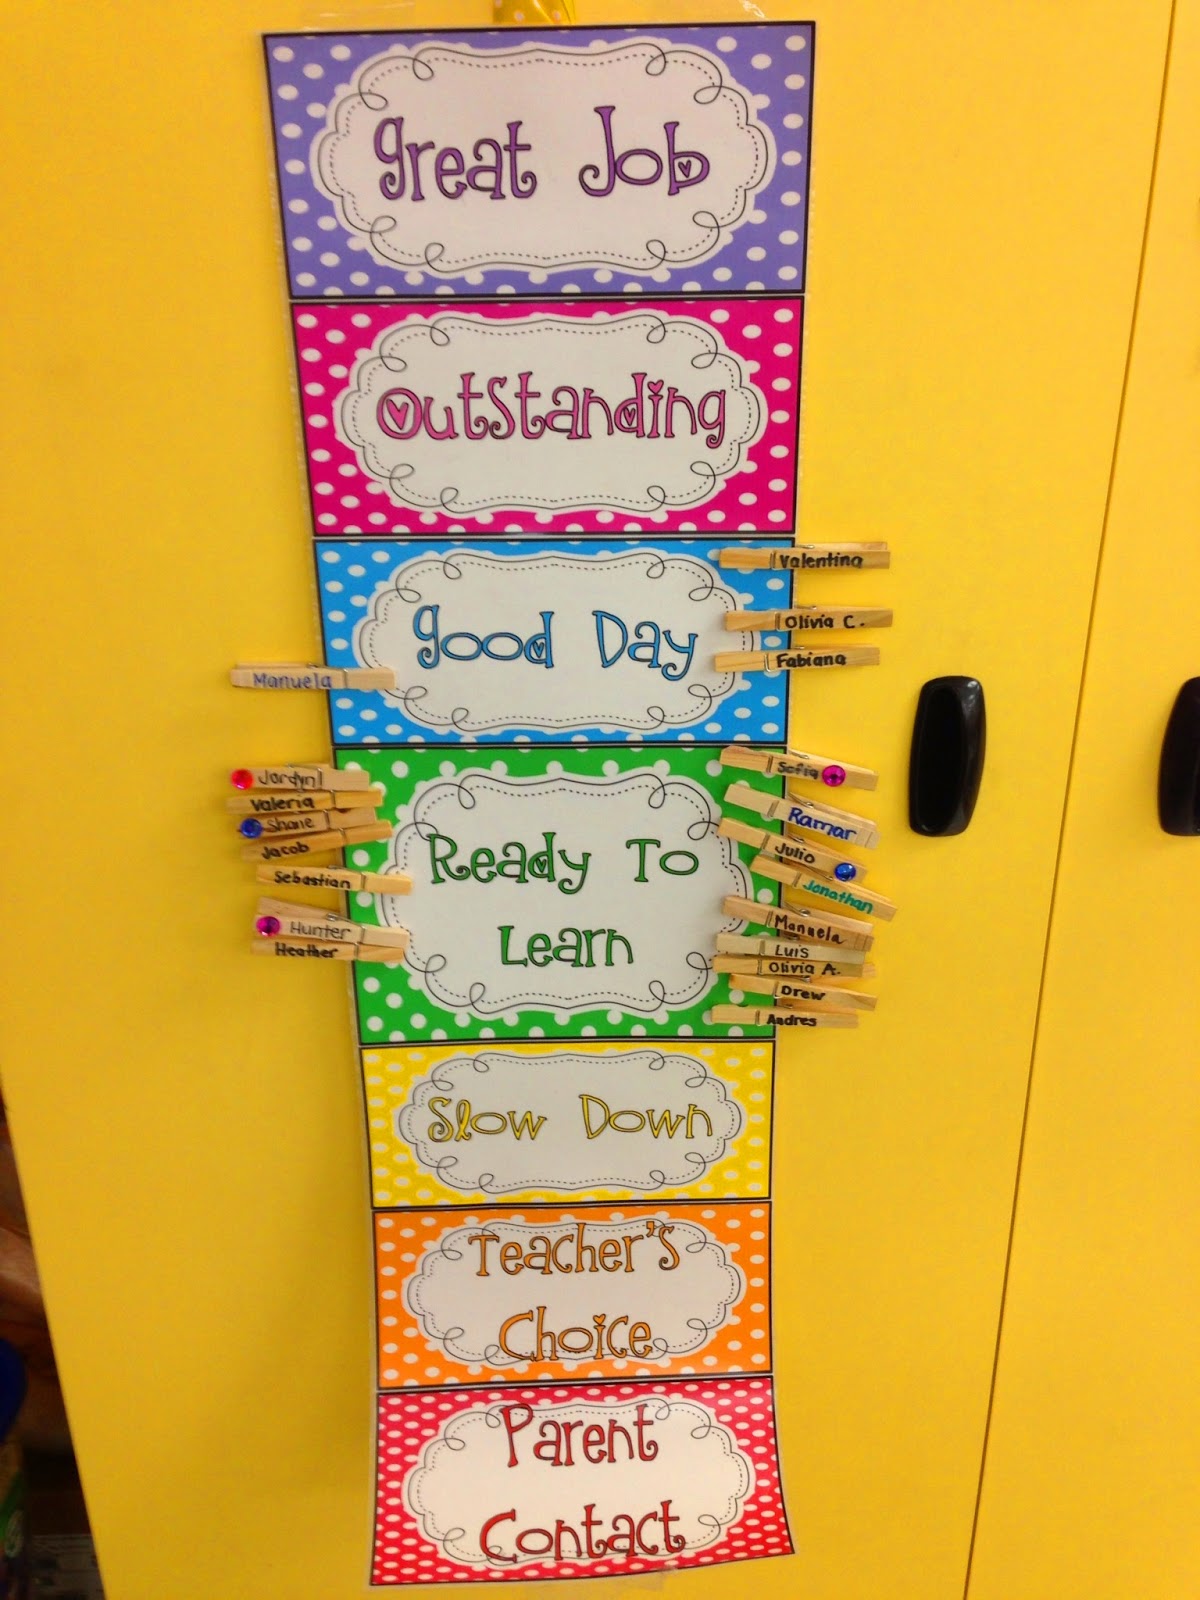 Great Job
Outstanding
Valentina
Olivia C.
Good Day
Fabiana
Manuela
Sofia
Jordyn
Valeria
Shane
Jacob
Sebastian
Hunter
Heather
Ready To
Learn
Ramar
Julio
Jonathan
Manuela
Luis
Olivia A.
Drew
Andres
Slow Down
Teacher's
Choice
Parent
Contact